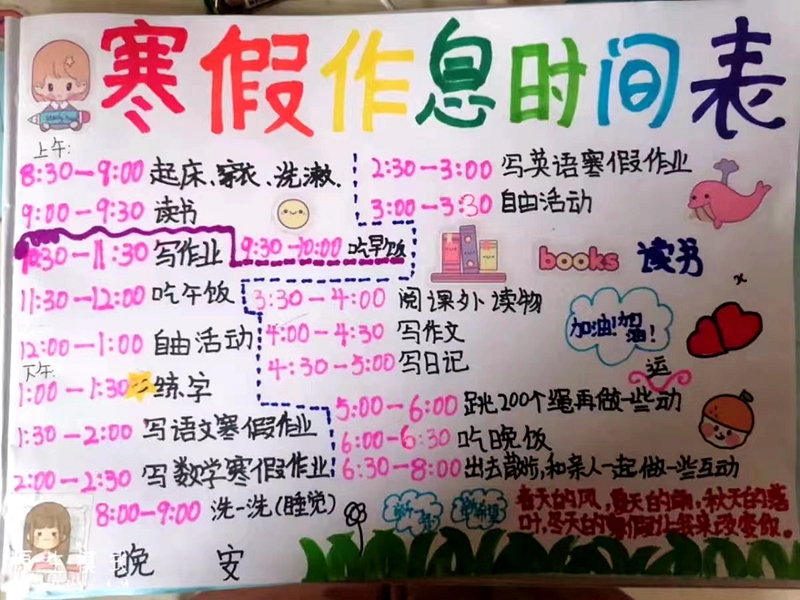 寒假作息时间表
上午:
8:30—9:00 起床、穿衣、洗漱.
9:00—9:30 读书
9:30—10:00 吃早饭
10:30—11:30 写作业
11:30—12:00 吃午饭
12:00—1:00 自由活动
下午:
1:00—1:30 练字
1:30—2:00 写语文寒假作业
2:00—2:30 写数学寒假作业
2:30—3:00 写英语寒假作业
3:00—3:30 自由活动
books 读书
3:30—4:00 阅课外读物
4:00—4:30 写作文
4:30—5:00 写日记
加油!加油!
运
5:00—6:00 跳200个绳再做一些动
6:00—6:30 吃晚饭
6:30—8:00 出去散步,和亲人一起做一些互动
8:00—9:00 洗一洗(睡觉)
晚安
新一年 新希望
春天的风,夏天的雨,秋天的落
叶,冬天的寒假让我来改变你。